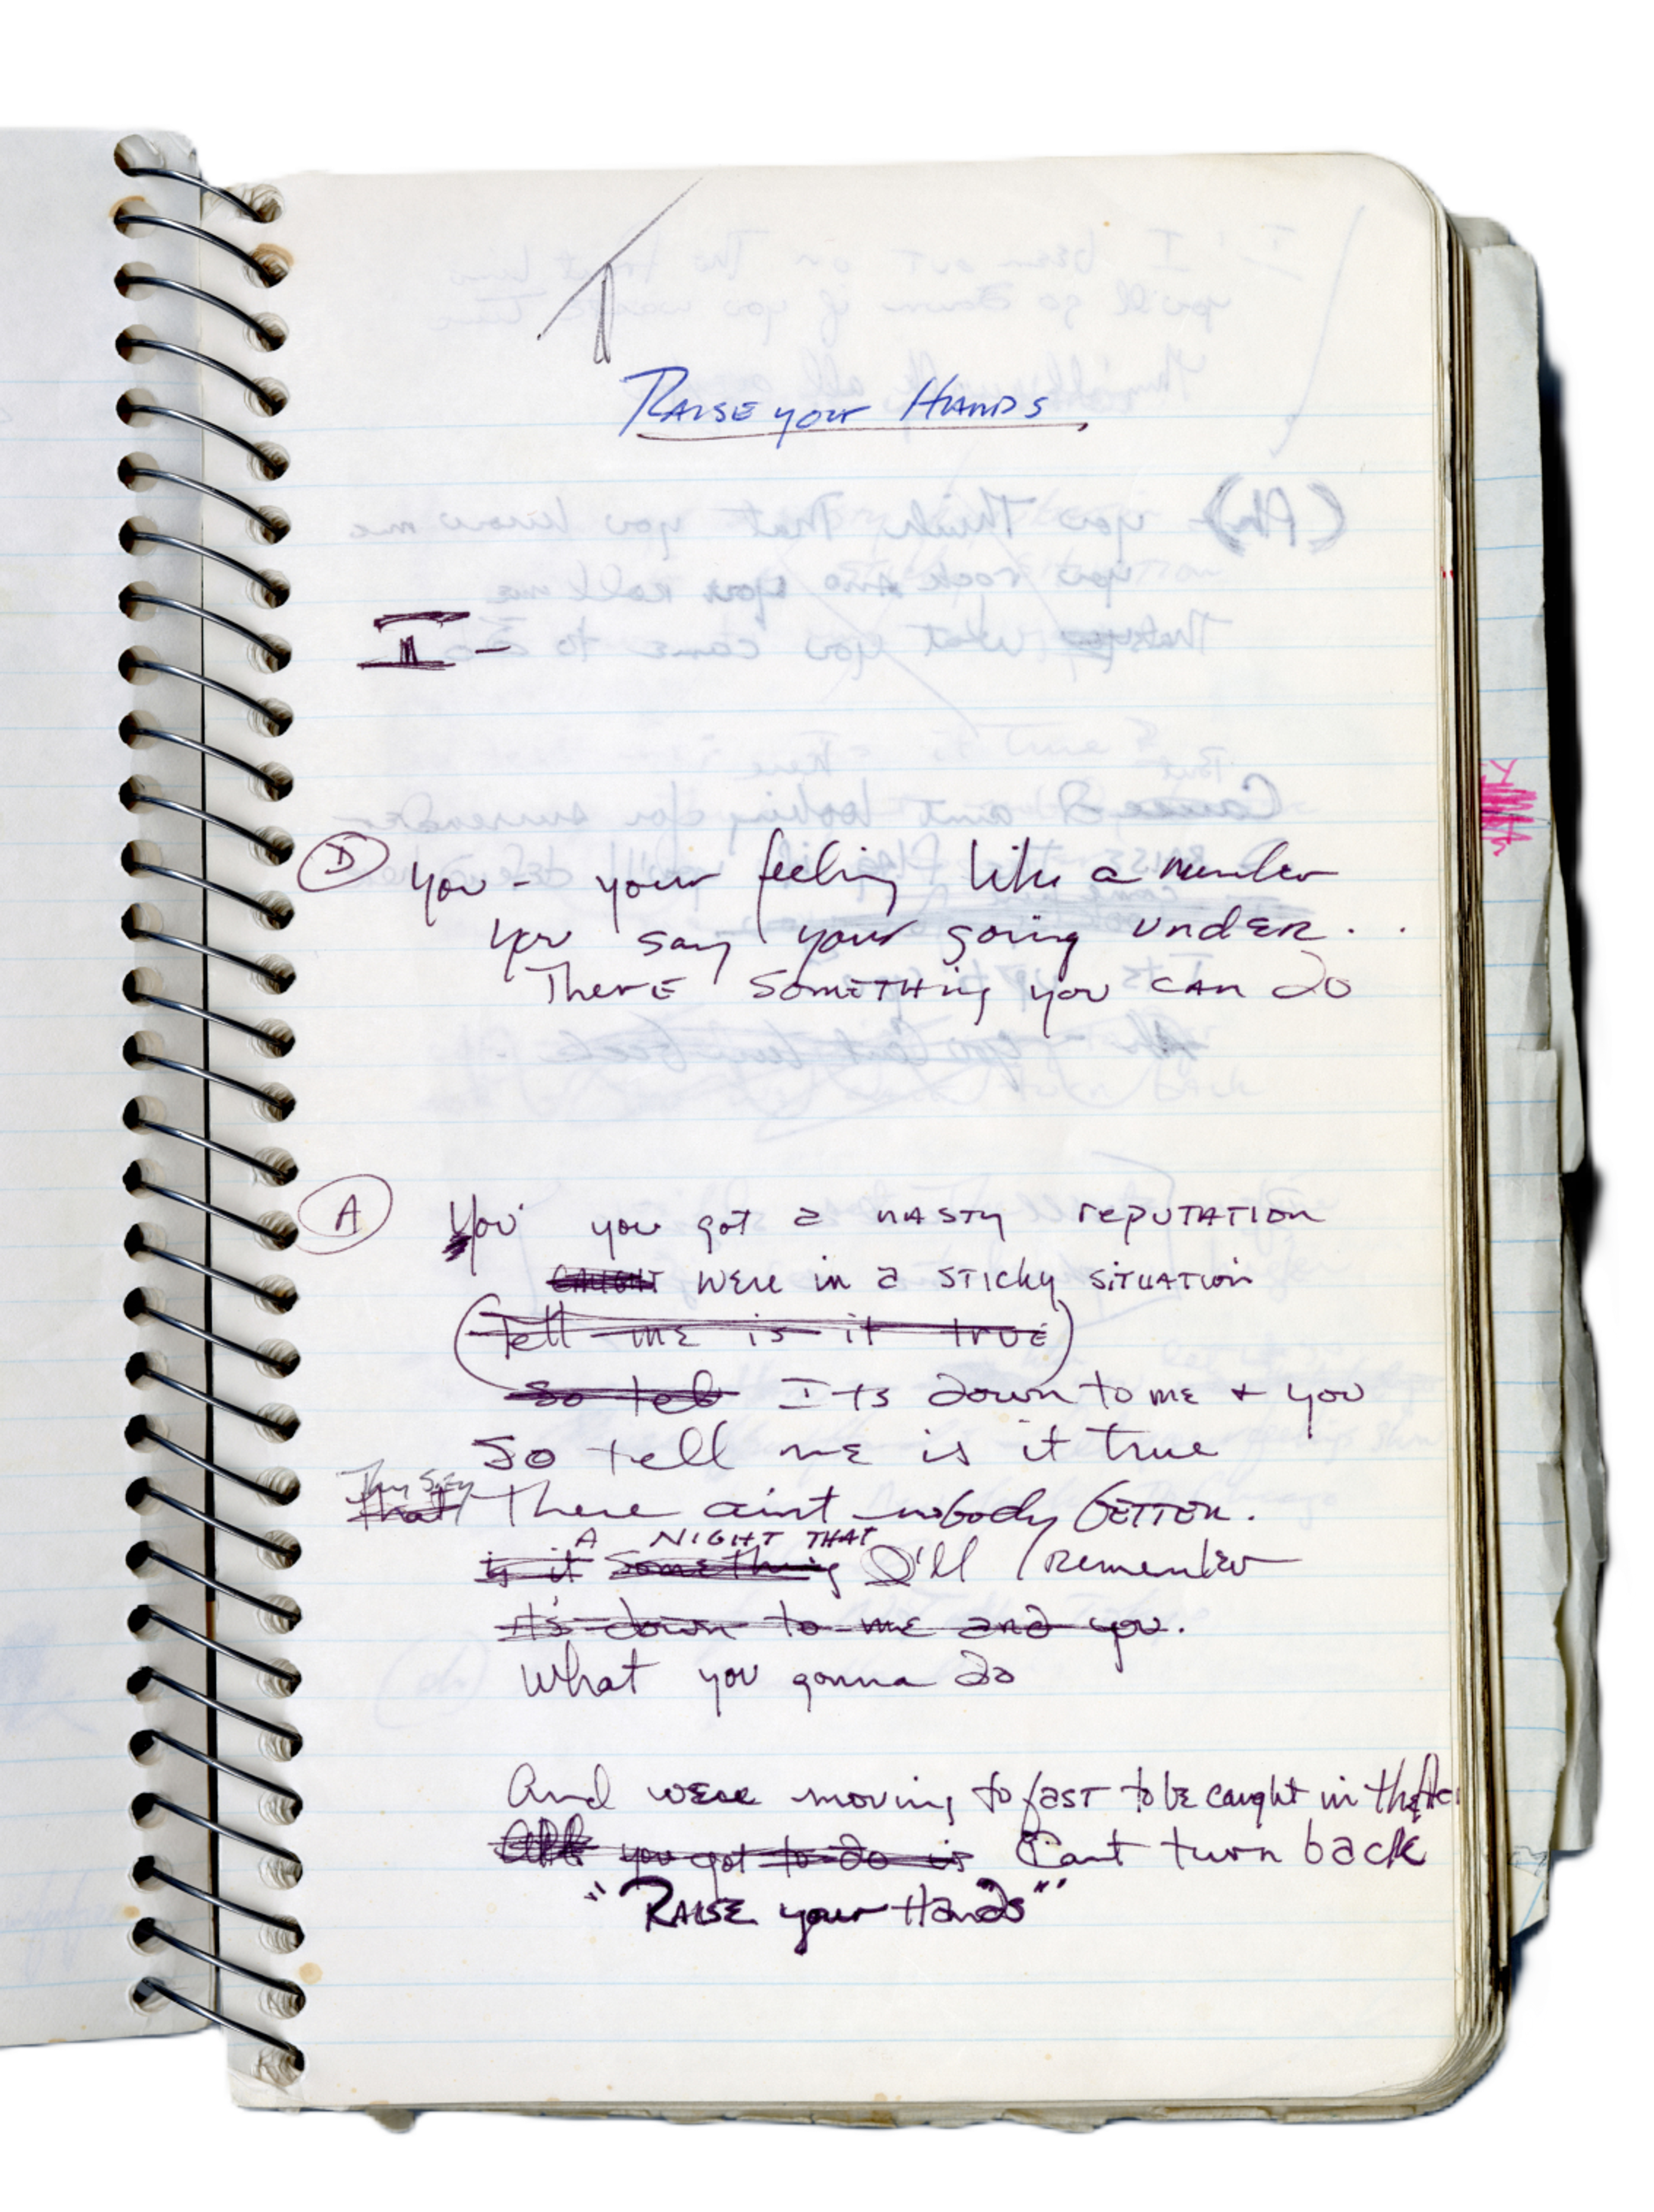 RAISE your HANDS
I -
D you - your feeling like a number
you say your going UNDER . .
There SOMETHing you CAN do
A You' you got a NASTY rePUTATION
CAUGHT WERE in a STICKY SiTUATION
(Tell me is it true)
So tell Its down to me + you
So tell me is it true
They Say
That There aint nobody BETTER.
A NIGHT THAT
is it Something I'll remember
it's down to me and you.
What you gonna do
And were moving to fAST to be caught in the Act
All you got to do is Cant turn back
"RAISE your Hands"